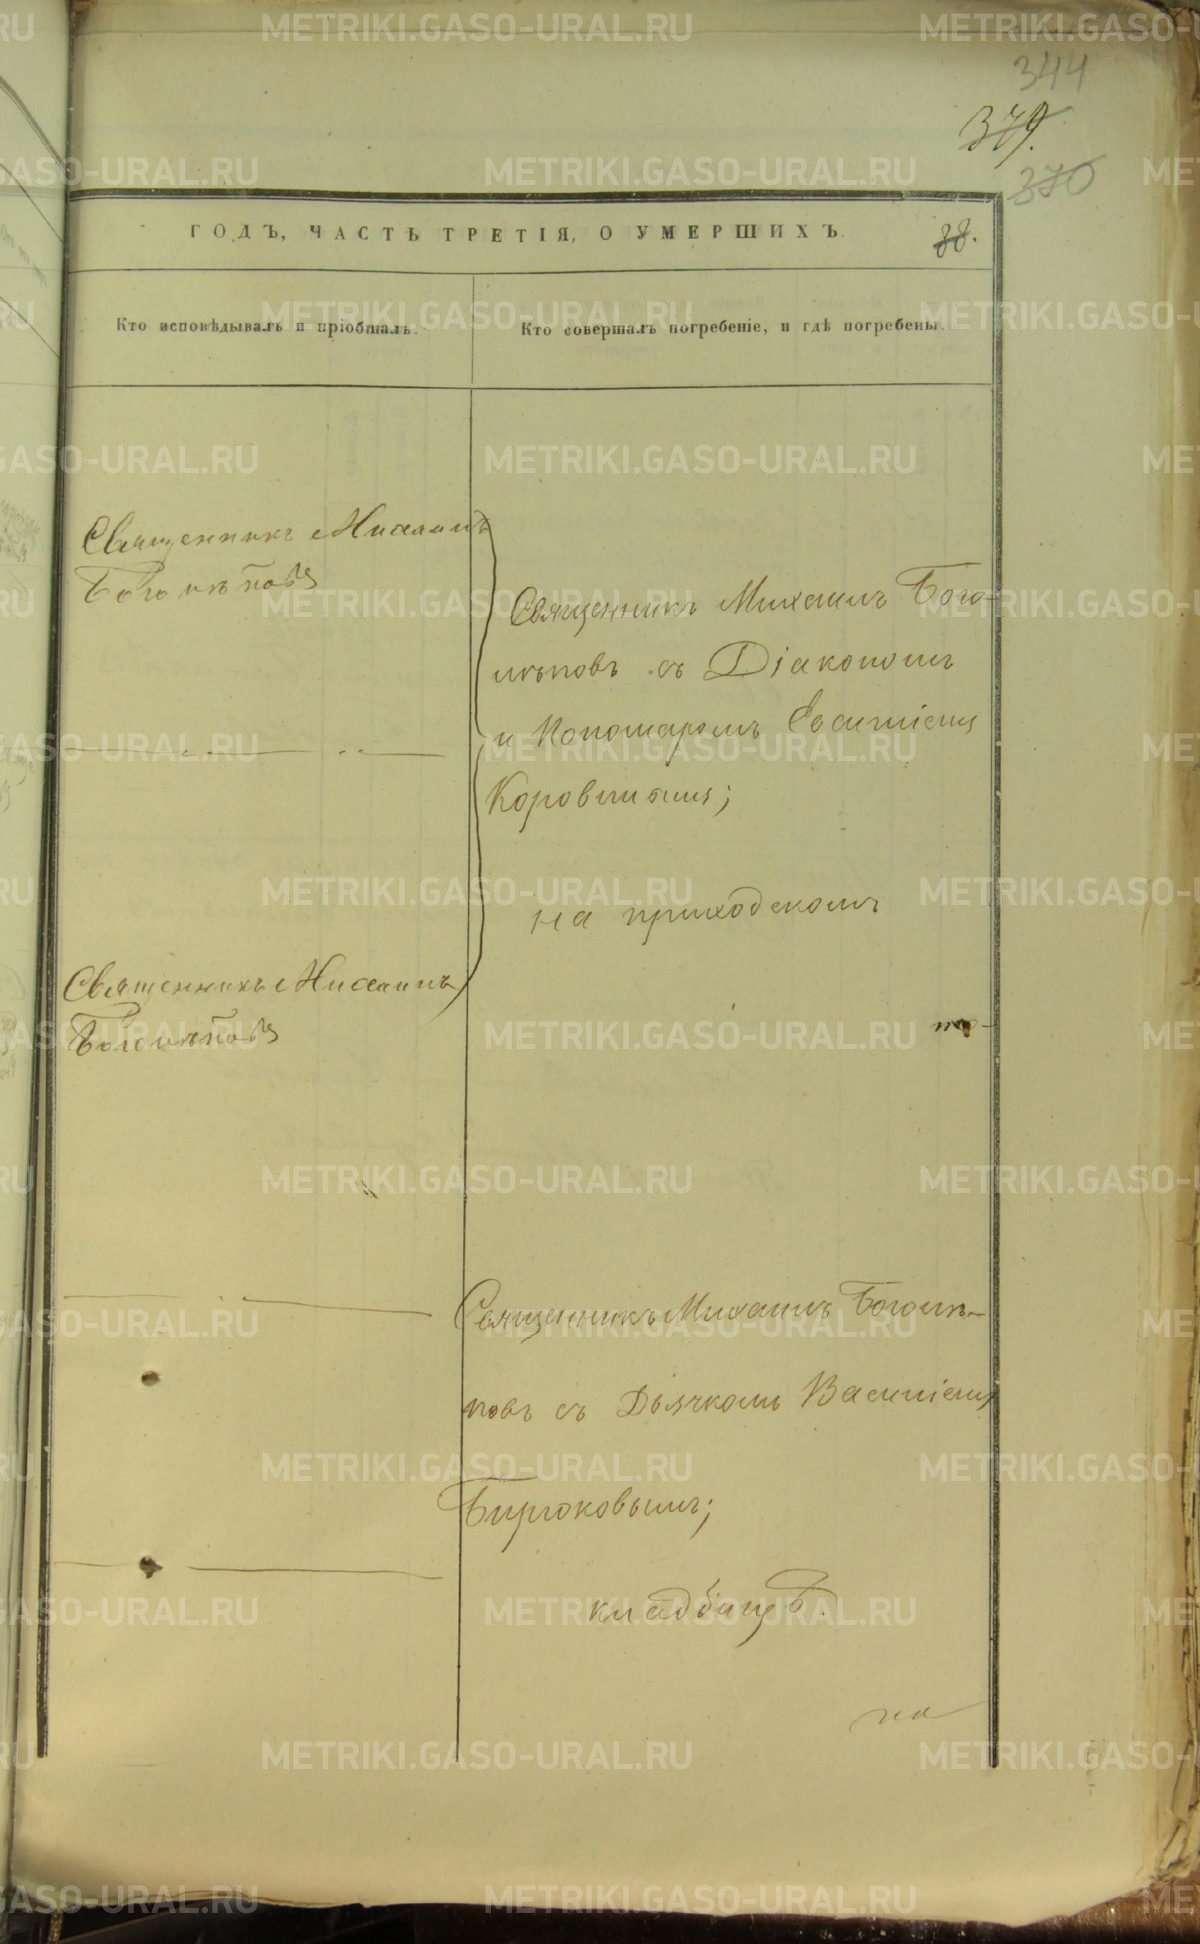 344
379.
370
ГОДЪ, ЧАСТЬ ТРЕТІЯ, О УМЕРШИХЪ.
88.
Кто исповѣдывалъ и пріобщалъ.
Кто совершалъ погребеніе, и гдѣ погребены.
Священникъ Михаилъ
Боголѣповъ
Священникъ Михаилъ Бого-
лѣповъ съ Діакономъ
и Пономаремъ
Коровинымъ;
на приходскомъ
Священникъ Михаилъ
Боголѣповъ
Священникъ Михаилъ Боголѣ-
повъ съ Дьячкомъ Василіемъ
Бирюковымъ;
кладбищѣ.
на
METRIKI.GASO-URAL.RU